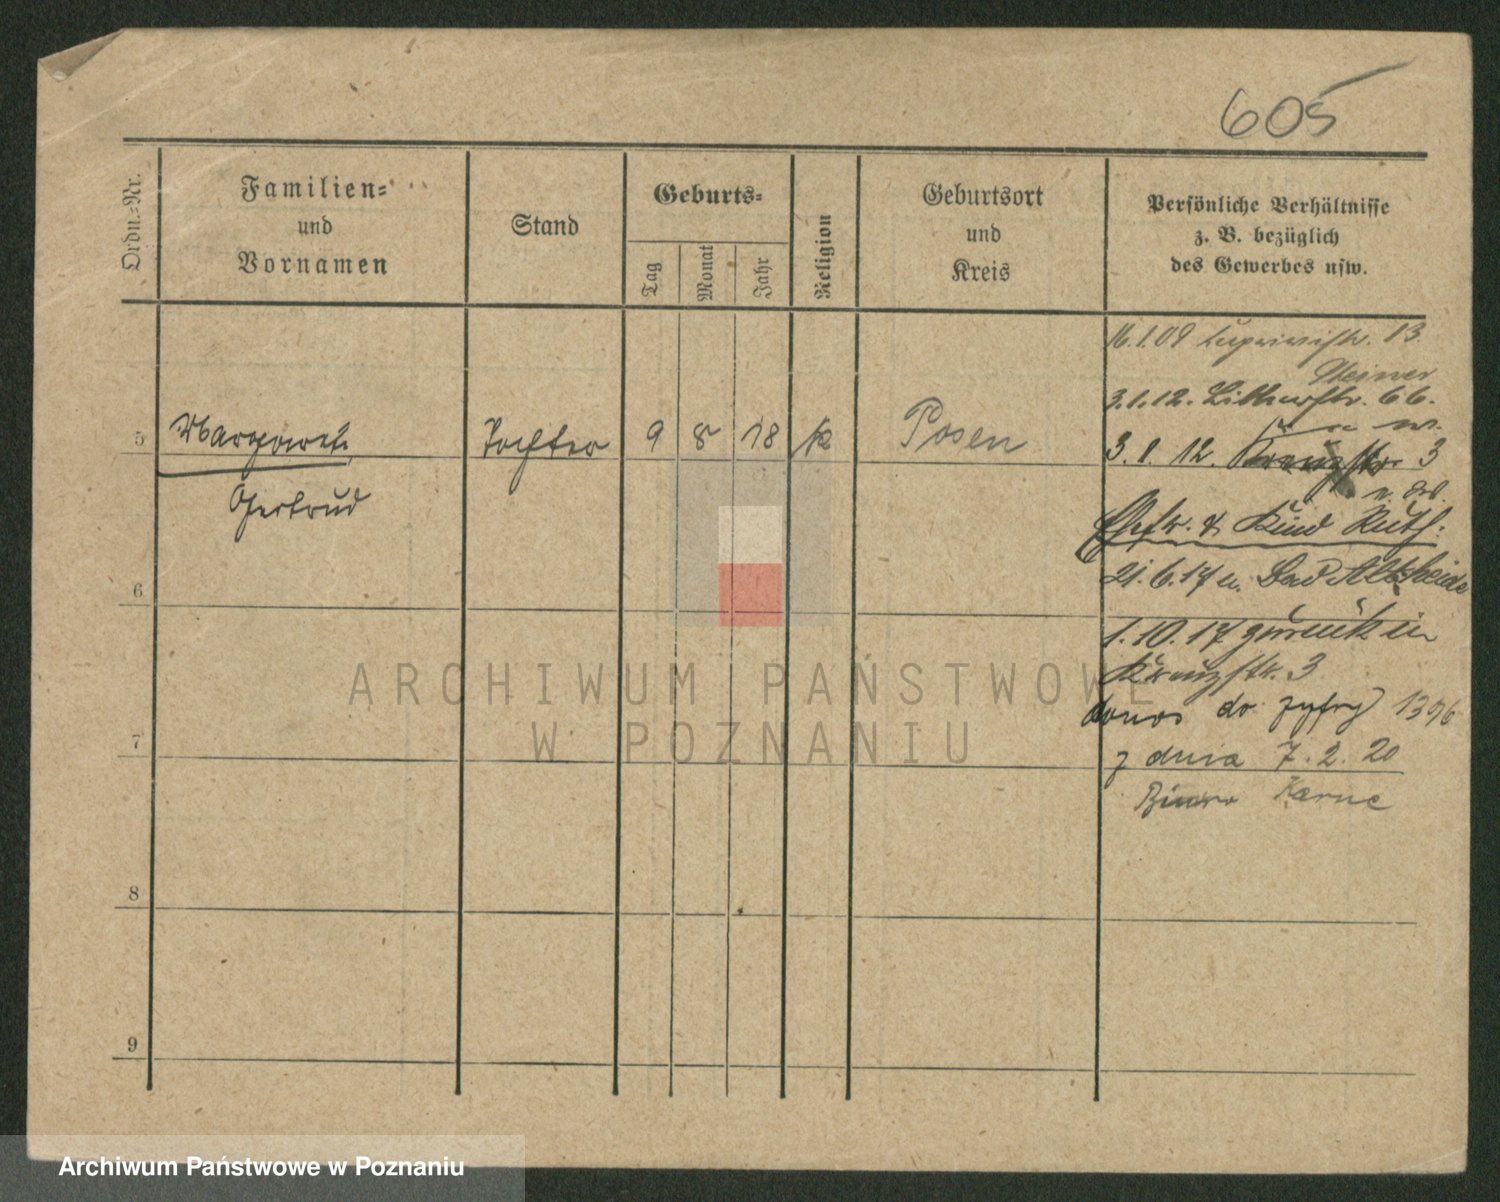 605
Ordn.=Nr.
Familien=
und
Vornamen
Stand
Geburts=
Tag
Monat
Jahr
Religion
Geburtsort
und
Kreis
Persönliche Verhältnisse
z. B. bezüglich
des Gewerbes usw.
5
Margarete
Gertrud
Tochter
9
8
18
k
Posen
16.1.09 13.
3.1.12. 66.
3. 1. 12. Kreuzstr. 3
Ehefr. & Kind Ruth:
21.6.17 n. Bad Altheide
1.10.17 zurück in
Kreuzstr. 3
donos do cyfry 1396
z dnia 7.2.20
Biuro Karne
6
7
8
9
ARCHIWUM PAŃSTWOWE
W POZNANIU
Archiwum Państwowe w Poznaniu